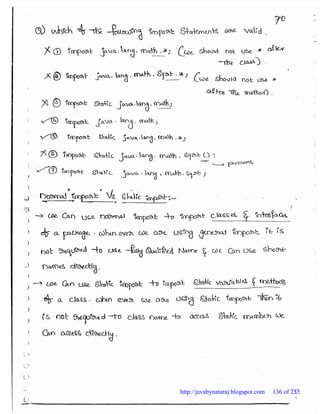 70
Q) which of the following import statements are valid.
X ① import java.lang.math.*; (we should not use * after
the class).
X ② import java.lang.math.sqrt.*; (we should not use *
after the method).
X ③ import static java.lang.math;
✓④ import java.lang.math;
✓⑤ import static java.lang.math.*;
X⑥ import static java.lang.math.sqrt();
problem
✓⑦ import static java.lang.math.sqrt;
normal import Vs static import:-
→ we can use normal import to import classes & interfaces
of a package. when ever we are using general import it is
not required to use fully Qualified Name & we can use short
names directly.
→ we can use static import to import static variables & methods
of a class. when ever we are using static import then it
is not required to use class name to access static members we
can access directly.
http://javabynataraj.blogspot.com 136 of 255.